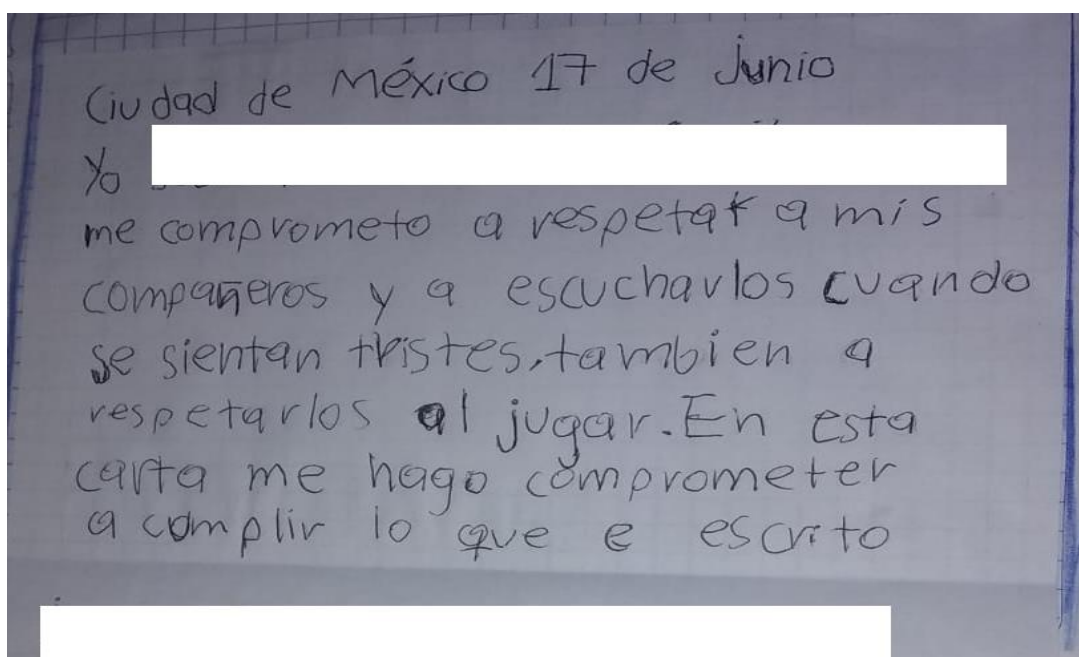 Ciudad de México 17 de Junio
Yo
me comprometo a respetar a mis
compañeros y a escucharlos cuando
se sientan tristes, tambien a
respetarlos al jugar. En esta
carta me hago comprometer
a complir lo que e escrito